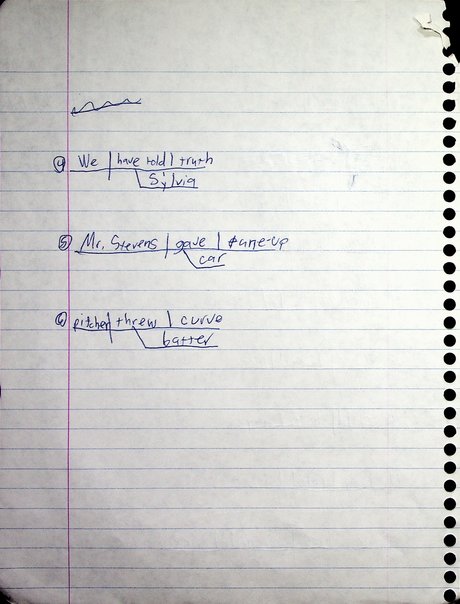 4 We have told truth
Sylvia
5 Mr. Stevens gave tune-up
car
6 pitcher threw curve
batter